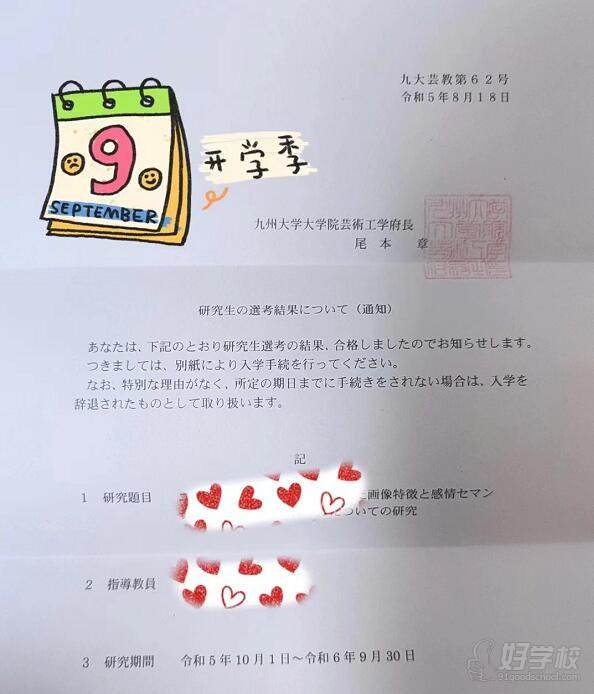 九大芸教第62号
令和5年8月18日
9
SEPTEMBER
开学季
九州大学大学院芸術工学府長
尾本 章
研究生の選考結果について（通知）
あなたは、下記のとおり研究生選考の結果、合格しましたのでお知らせします。
つきましては、別紙により入学手続を行ってください。
なお、特別な理由がなく、所定の期日までに手続きをされない場合は、入学を
辞退されたものとして取り扱います。
記
1 研究題目
画像特徴と感情セマン
ついての研究
2 指導教員
3 研究期間 令和5年10月1日～令和6年9月30日
好学校
91goodschool.com